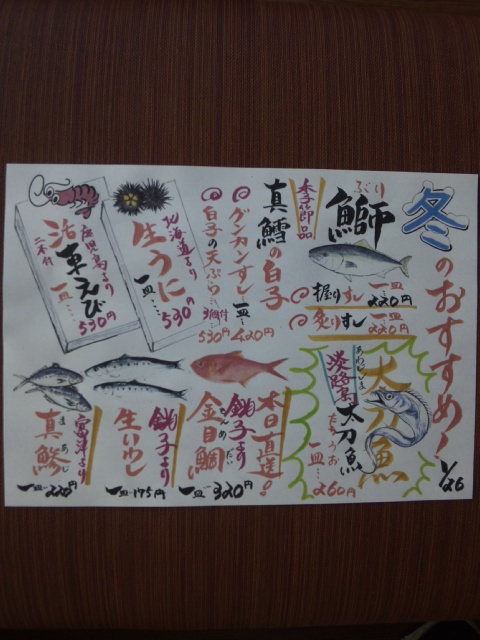 冬のおすすめ!
1/26
ぶり
鰤
季節品
握りずし 一皿 220円
炙りずし 一皿 220円
真鱈の白子
グンカンずし 一皿 420円
白子の天ぷら 3個付 530円
北海道より
生うに
一皿… 590円
鹿児島より
活車えび
二本付
一皿… 530円
太刀魚
あわじしま
淡路島
太刀魚
たちうお
一皿… 260円
本日直送!
銚子より
金目鯛
きんめだい
一皿… 320円
銚子より
生いわし
一皿… 175円
富津より
真鯵
まあじ
一皿… 220円